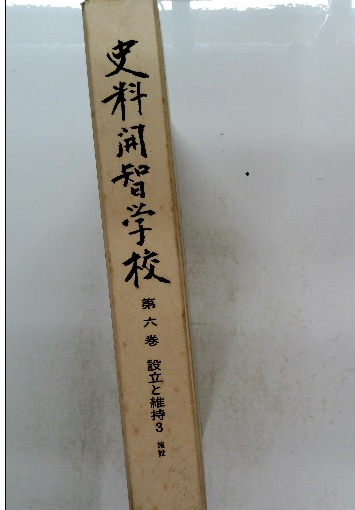 史料開智学校
第六巻 設立と維持3 施設